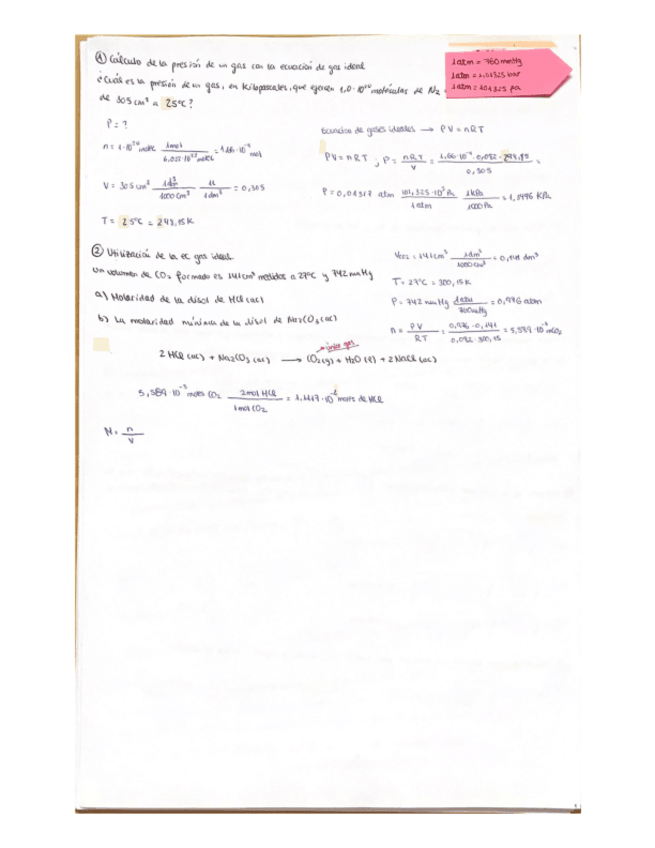 ① Cálculo de la presión de un gas con la ecuación de gas ideal
¿Cuál es la presión de un gas, en kilopascales, que ejercen 1,0·10²⁰ moléculas de N₂
de 305 cm³ a 25ºC?
1atm = 760 mmHg
1atm = 1,01325 bar
1atm = 101325 pa
P = ?
n = 1·10²⁰ molec 1mol / 6,022·10²³ molec = 1,66·10⁻⁴ mol
V = 305 cm³ 1dm³ / 1000 cm³ 1L / 1dm³ = 0,305
T = 25ºC = 298,15 K
Ecuacion de gases ideales → PV = nRT
PV = nRT ; P = nRT / V = 1,66·10⁻⁴·0,082·298,15 / 0,305 =
P = 0,01317 atm 101,325·10³ Pa / 1atm 1kPa / 1000 Pa = 1,3496 KPa
② Utilización de la ec gas ideal.
Un volumen de CO₂ formado es 141 cm³ medidos a 27ºC y 742 mmHg
a) Molaridad de la disol de HCl (ac)
b) La molaridad mínima de la disol de Na₂CO₃ (ac)
V CO₂ = 141 cm³ 1dm³ / 1000 cm³ = 0,141 dm³
T = 27ºC = 300,15 K
P = 742 mmHg 1atm / 760mmHg = 0,976 atm
n = PV / RT = 0,976·0,141 / 0,082·300,15 = 5,589·10⁻³ mCO₂
único gas
2 HCl (ac) + Na₂CO₃ (ac) → CO₂(g) + H₂O (l) + 2 NaCl (ac)
5,589·10⁻³ moles CO₂ 2mol HCl / 1mol CO₂ = 1,1117·10⁻² moles de HCl
M = n / V